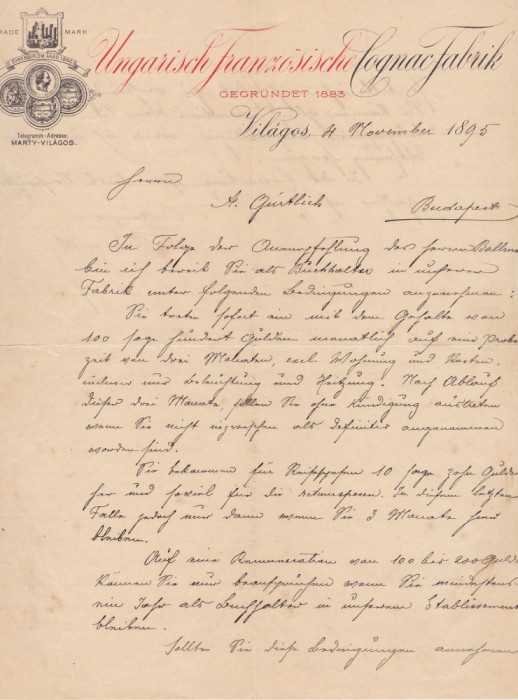 TRADE MARK
Ungarisch Französische Cognac Fabrik
GEGRÜNDET 1883
Telegramm-Adresse:
MARTY-VILÁGOS.
Világos, 4 November 1895
Herrn
A. Gürtlich
Budapest
In Folge der Anempfehlung des Herrn
bin ich bereit Sie als Buchhalter in unserer
Fabrik unter folgenden Bedingungen anzunehmen:
Sie treten sofort ein mit dem Gehalte von
100 sage hundert Gulden monatlich auf eine Probe
zeit von drei Monaten, excl. Wohnung und Kosten.
inclusiv nur Beleuchtung und Heitzung. Nach Ablauf
dieser drei Monate, sollen Sie ohne Kündigung austreten
wenn Sie nicht inzwischen als definitiv angenommen
worden sind.
Sie bekommen für Reisespesen 10 sage zehn Gulden
her und soviel für die retourspesen. In diesem letzten
Falle jedoch nur dann wenn Sie 3 Monate hier
bleiben.
Auf eine Remuneration von 100 bis 200 Gulden
können Sie nur beanspruchen wenn Sie mindestens
ein Jahr als Buchhalter in unserem Etablissement
bleiben.
Sollten Sie diese Bedingungen annehmen